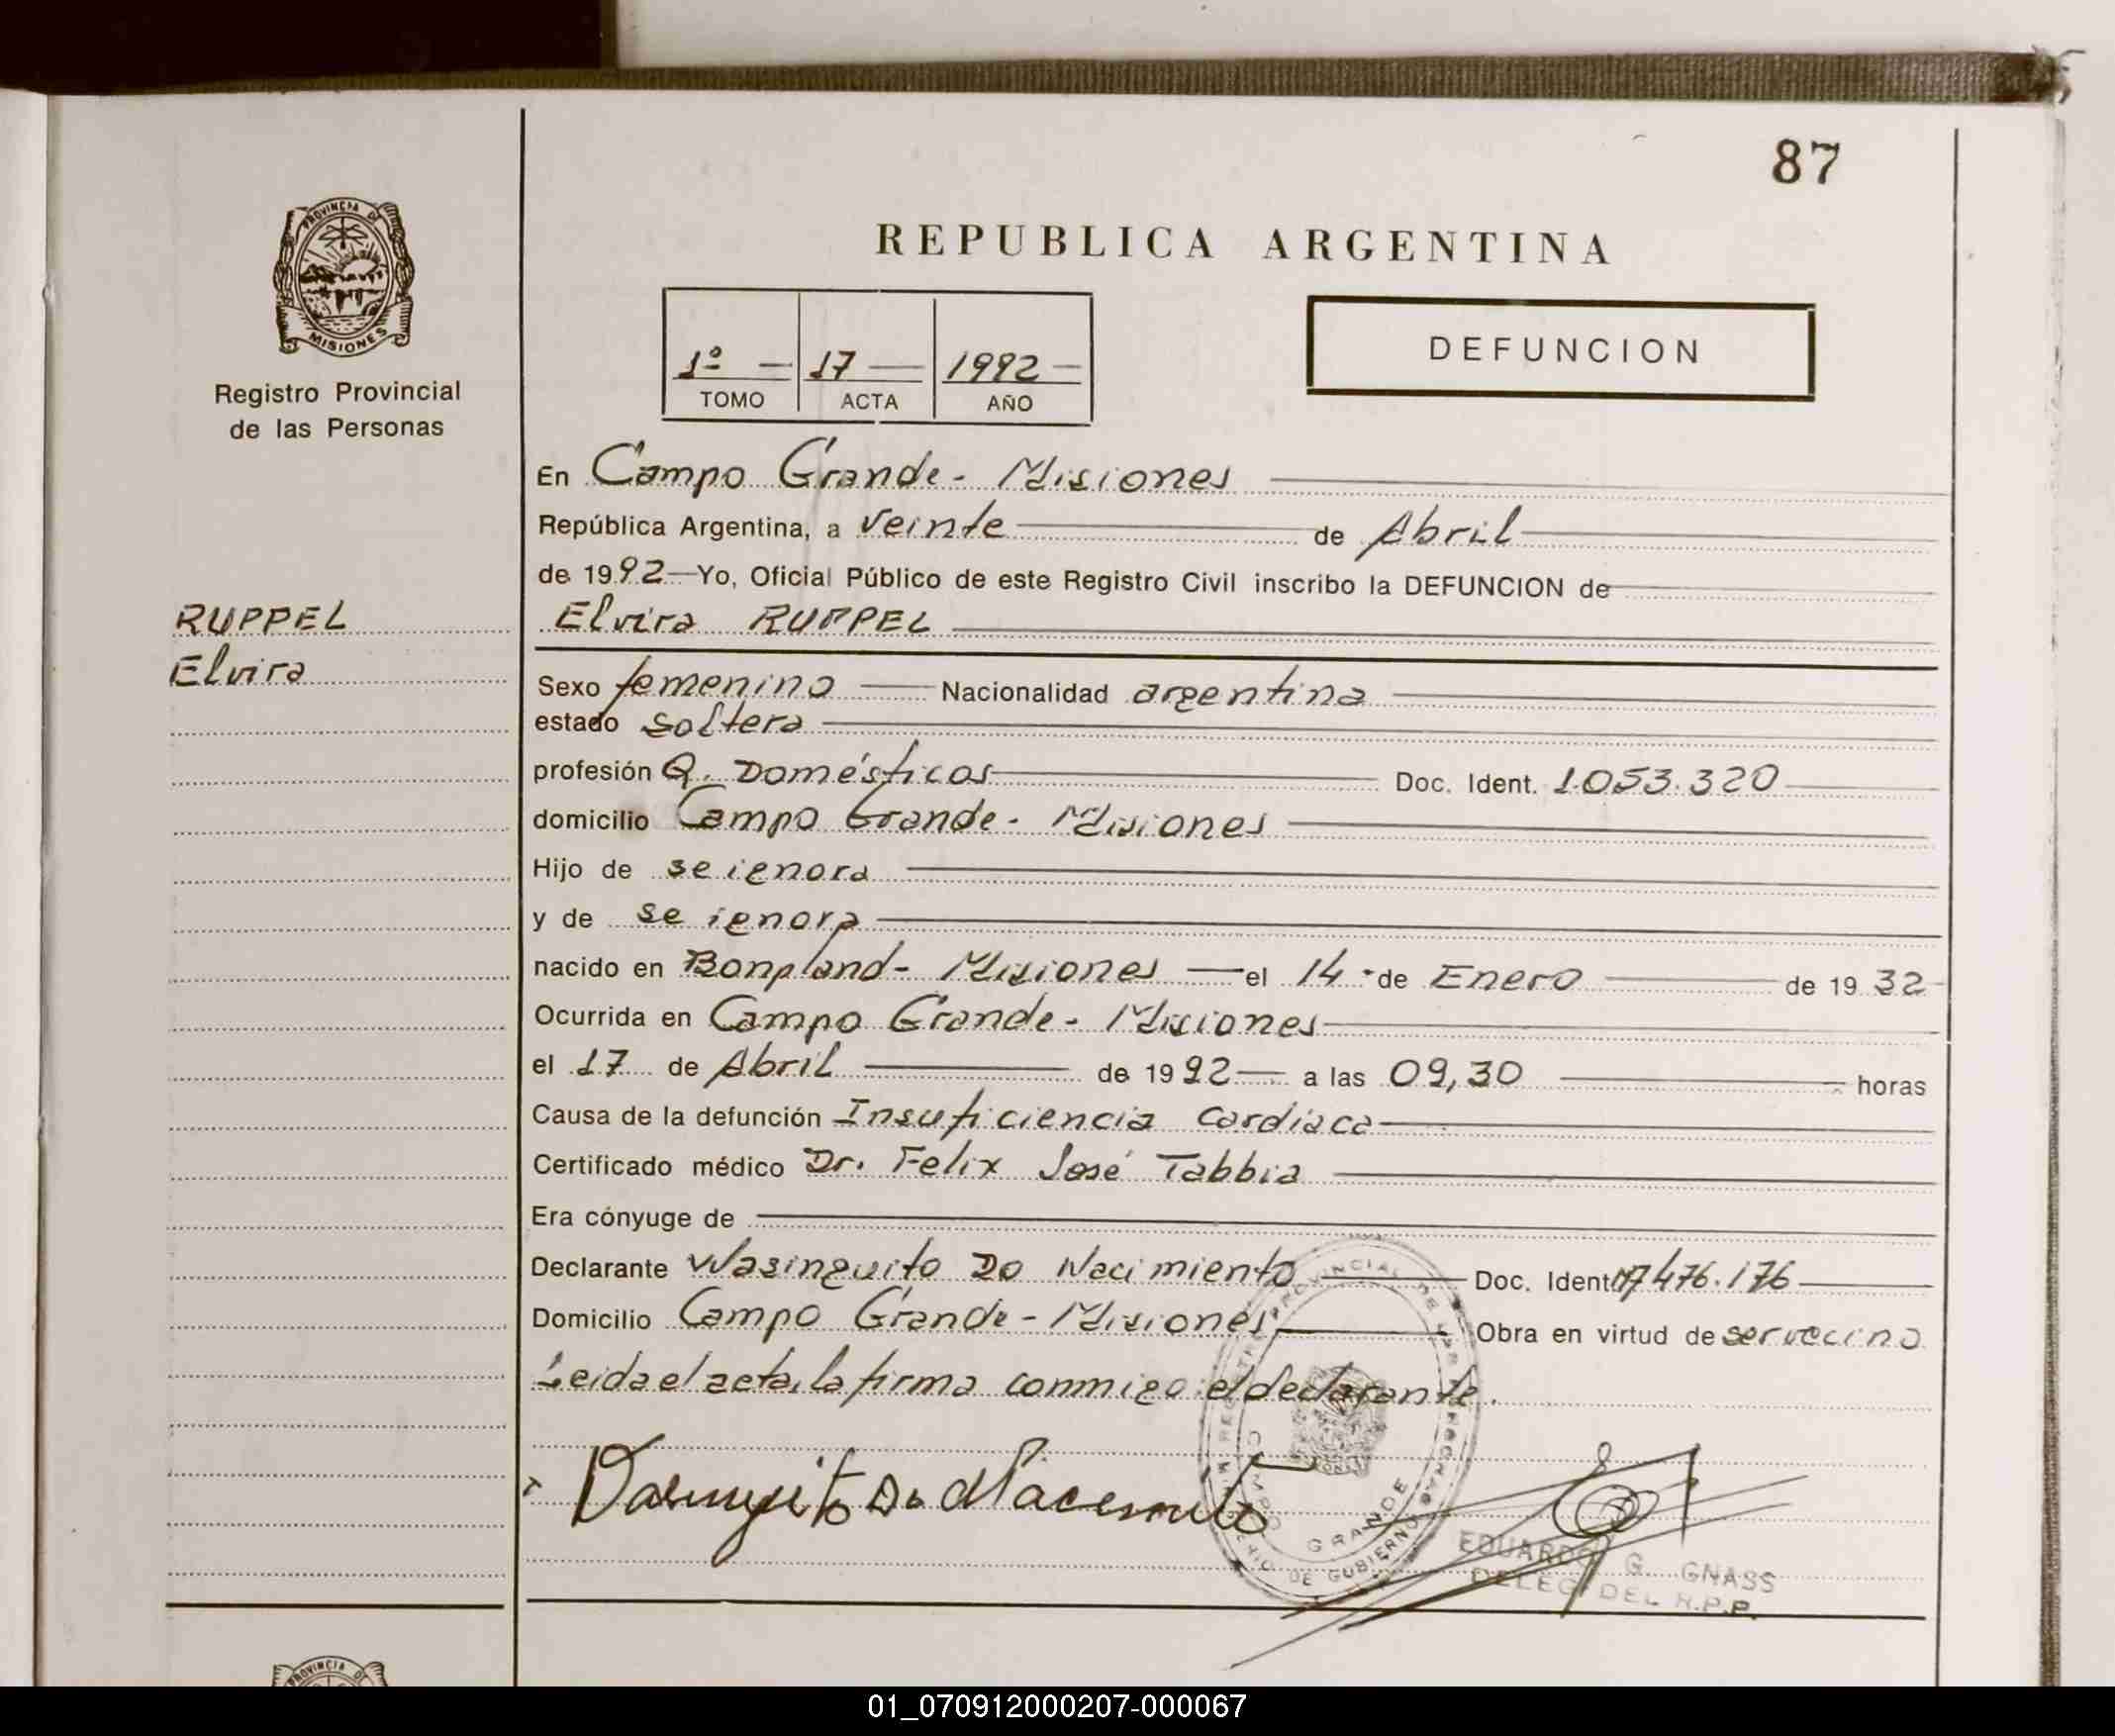 87
PROVINCIA DE
MISIONES
Registro Provincial
de las Personas
REPUBLICA ARGENTINA
1º — 17 — 1992 —
TOMO ACTA AÑO
DEFUNCION
En Campo Grande - Misiones
República Argentina, a veinte de Abril
de 1992 — Yo, Oficial Público de este Registro Civil inscribo la DEFUNCION de
RUPPEL
Elvira
Elvira RUPPEL
Sexo femenino — Nacionalidad argentina
estado soltera
profesión Q. Domésticos Doc. Ident. 1.053.320
domicilio Campo Grande - Misiones
Hijo de se ignora
y de se ignora
nacido en Bonpland - Misiones — el 14 - de Enero de 1932
Ocurrida en Campo Grande - Misiones
el 17 de Abril de 1992 — a las 09,30 horas
Causa de la defunción Insuficiencia cardíaca
Certificado médico Dr. Felix José Tabbia
Era cónyuge de
Declarante Wasinguito Do Nacimiento Doc. Ident. 17476.176
Domicilio Campo Grande - Misiones Obra en virtud de ser vecino
Leida el acta, la firma conmigo el declarante.
CAMPO GRANDE
EDUARDO G. GNASS
DELEG. DEL R.P.P.
PROVINCIA DE
01_070912000207-000067